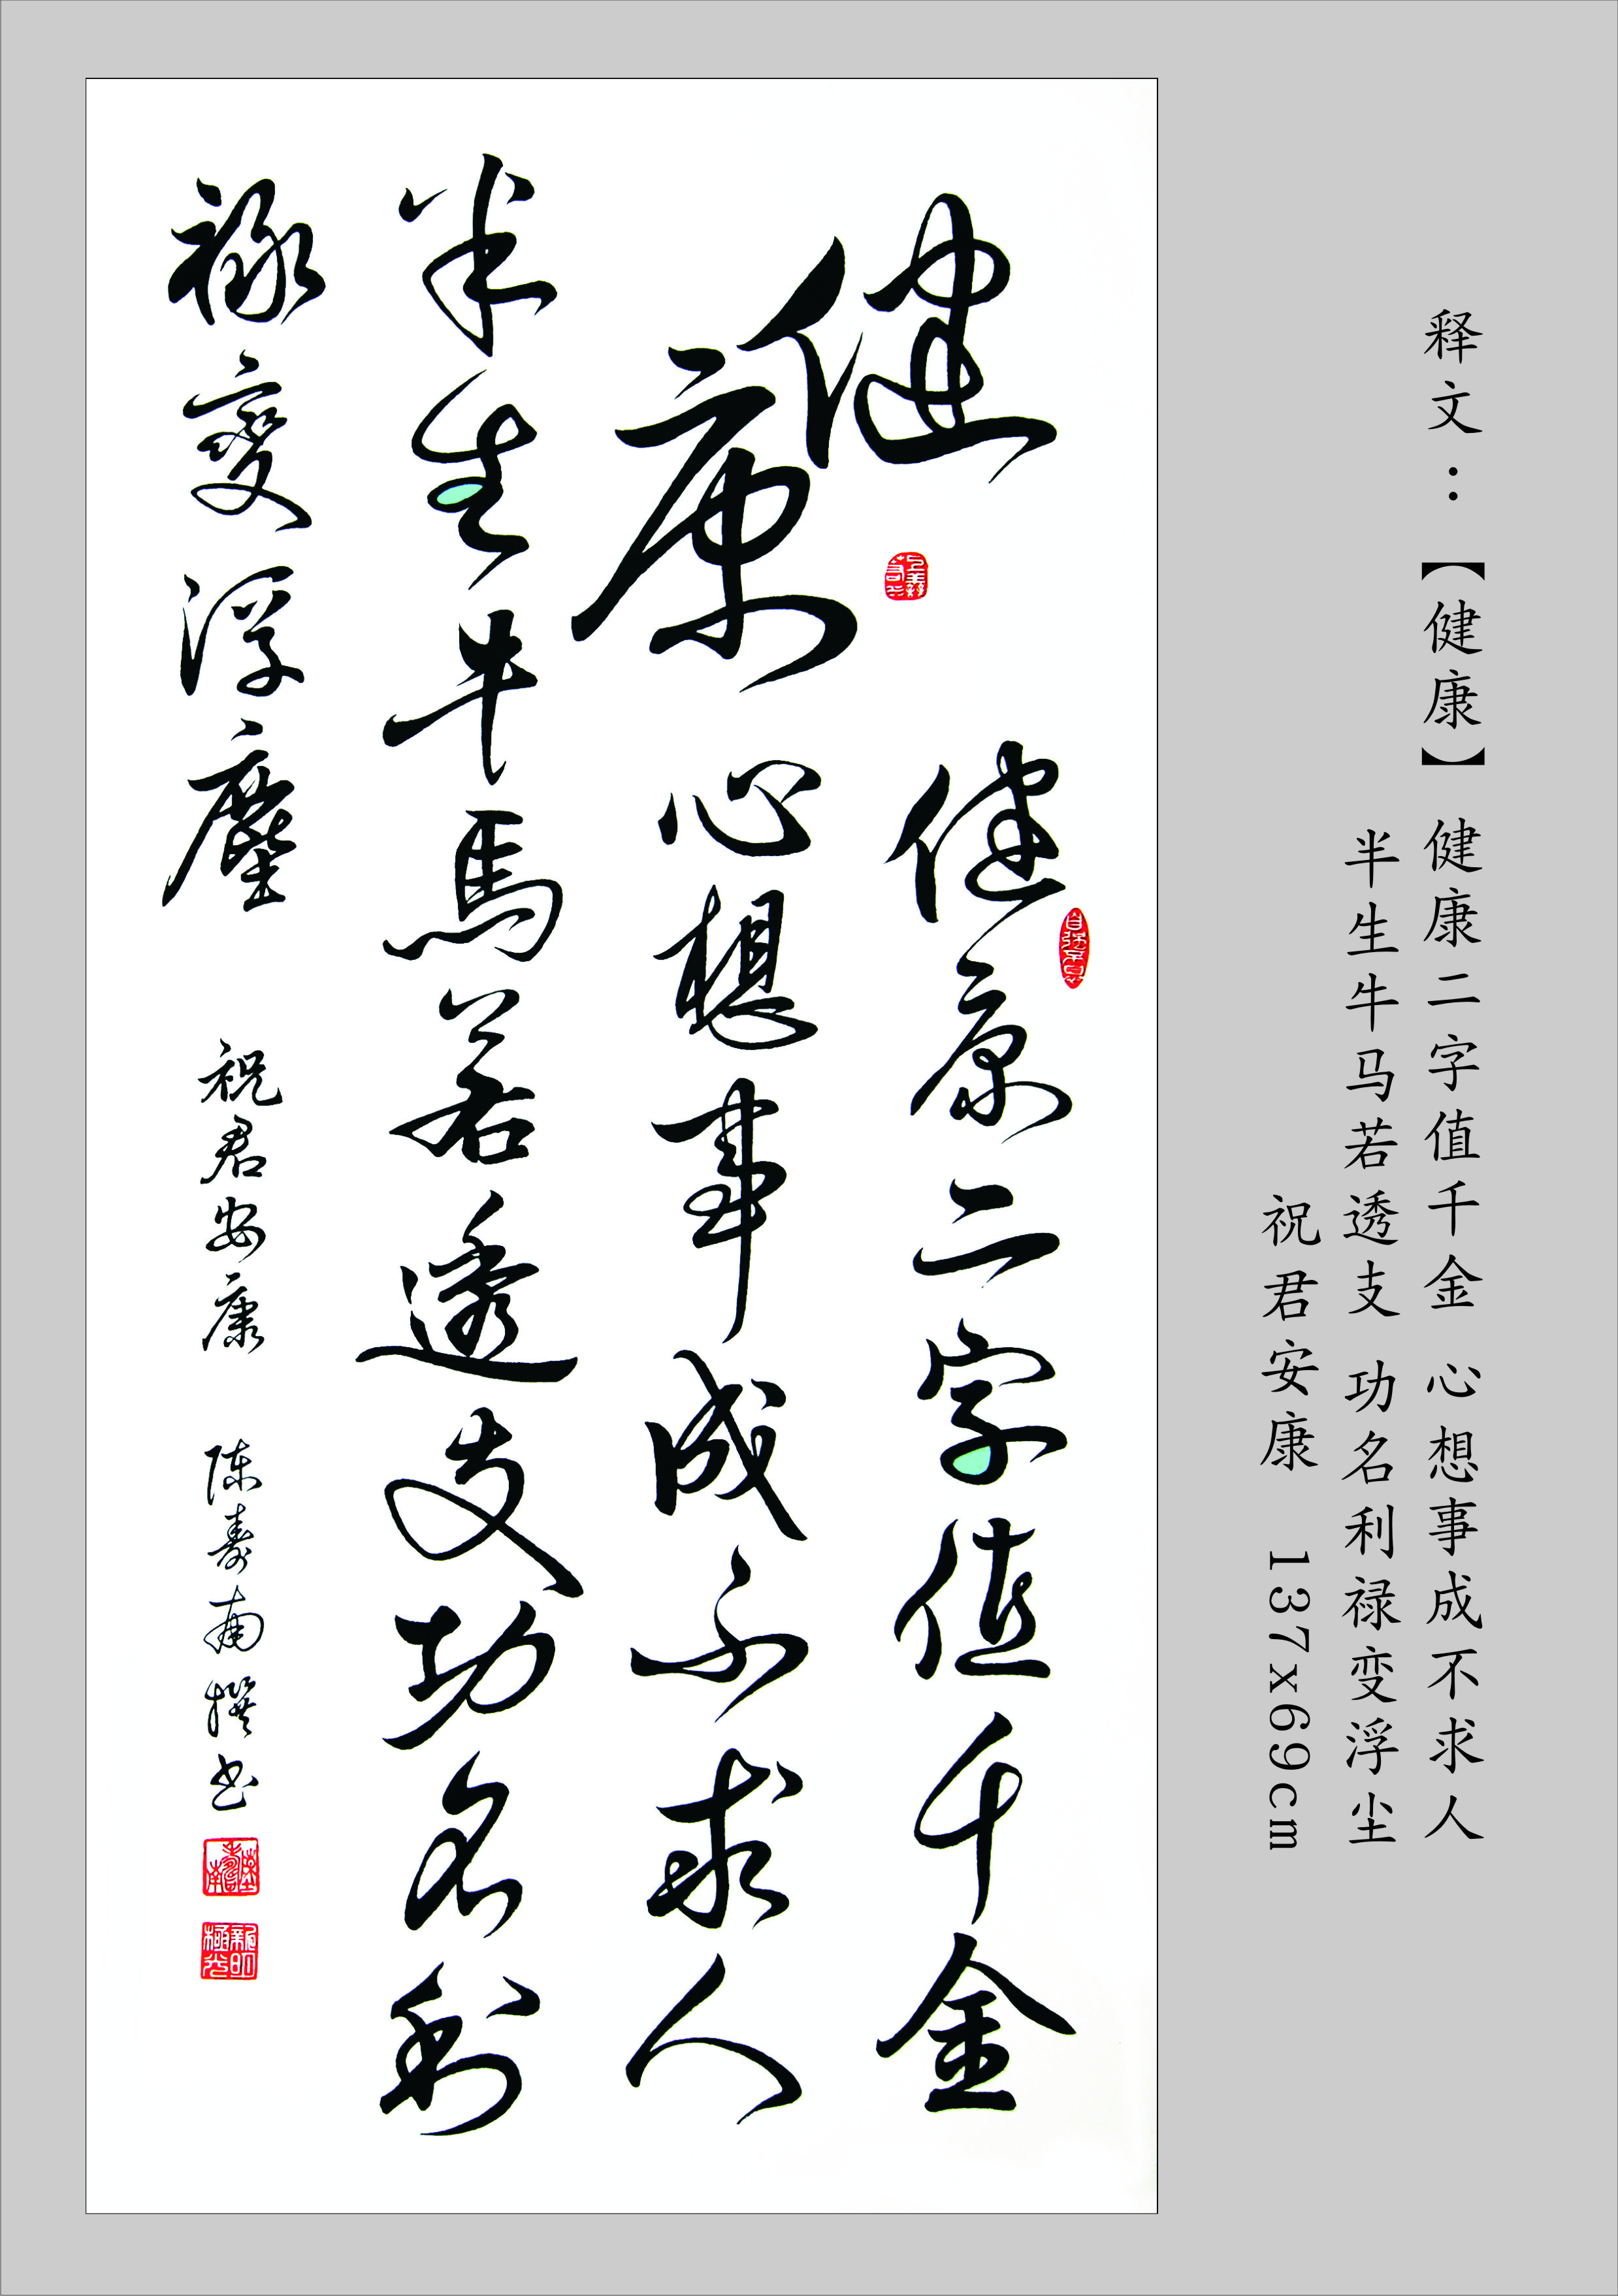 释文：【健康】 健康二字值千金 心想事成不求人
半生牛马若透支 功名利禄变浮尘
祝君安康 137x69cm
健康
健康二字值千金
心想事成不求人
半生牛馬若透支功名利
禄變浮塵 祝君安康 陈寿南撰书
自强不息